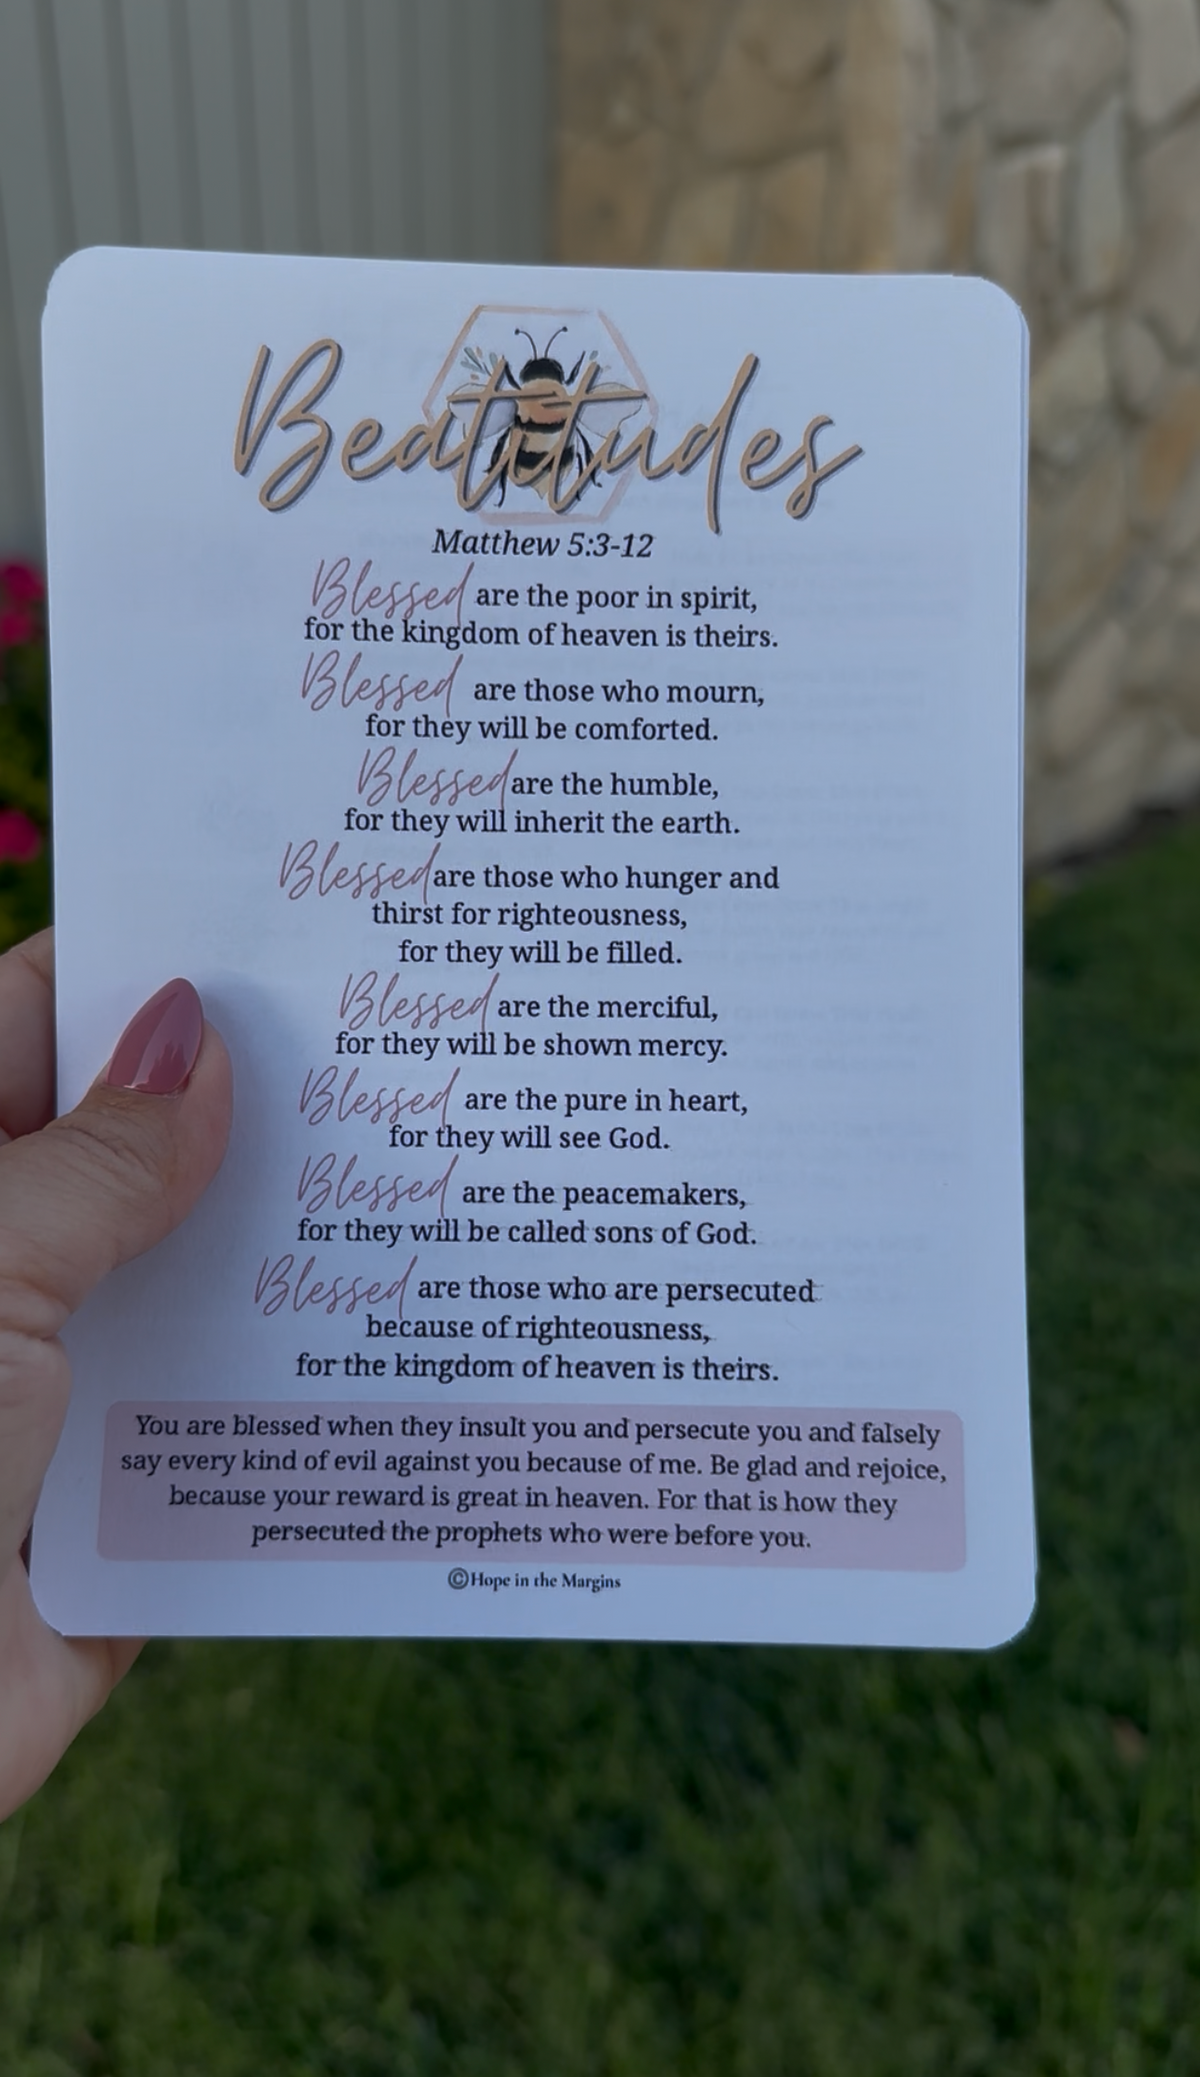 Beatitudes
Matthew 5:3-12
Blessed are the poor in spirit,
for the kingdom of heaven is theirs.
Blessed are those who mourn,
for they will be comforted.
Blessed are the humble,
for they will inherit the earth.
Blessed are those who hunger and
thirst for righteousness,
for they will be filled.
Blessed are the merciful,
for they will be shown mercy.
Blessed are the pure in heart,
for they will see God.
Blessed are the peacemakers,
for they will be called sons of God.
Blessed are those who are persecuted
because of righteousness,
for the kingdom of heaven is theirs.
You are blessed when they insult you and persecute you and falsely
say every kind of evil against you because of me. Be glad and rejoice,
because your reward is great in heaven. For that is how they
persecuted the prophets who were before you.
©Hope in the Margins